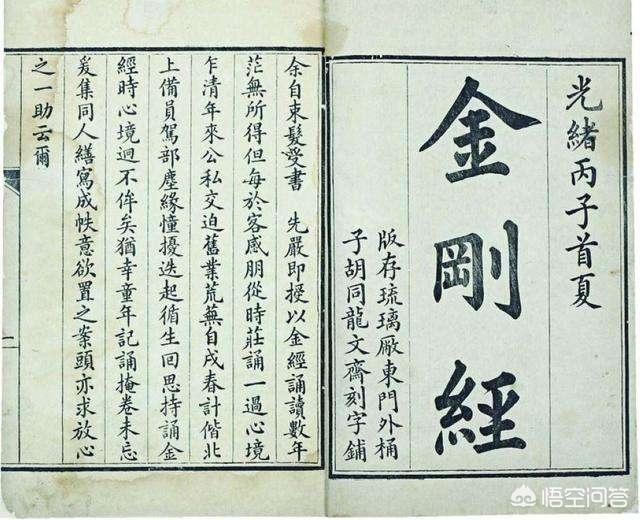 光緒丙子首夏
金剛經
版存琉璃厰東門外桶
子胡同龍文齋刻字鋪
余自束髮受書 先嚴即授以金經誦讀數年
茫無所得但每於客感朋從時莊誦一過心境
乍清年來公私交迫舊業荒蕪自戌春計偕北
上備員駕部塵緣憧擾迭起循生回思持誦金
經時心境迥不侔矣猶幸童年記誦掩卷未忘
爰集同人繕寫成帙意欲置之案頭亦求放心
之一助云爾
悟空问答